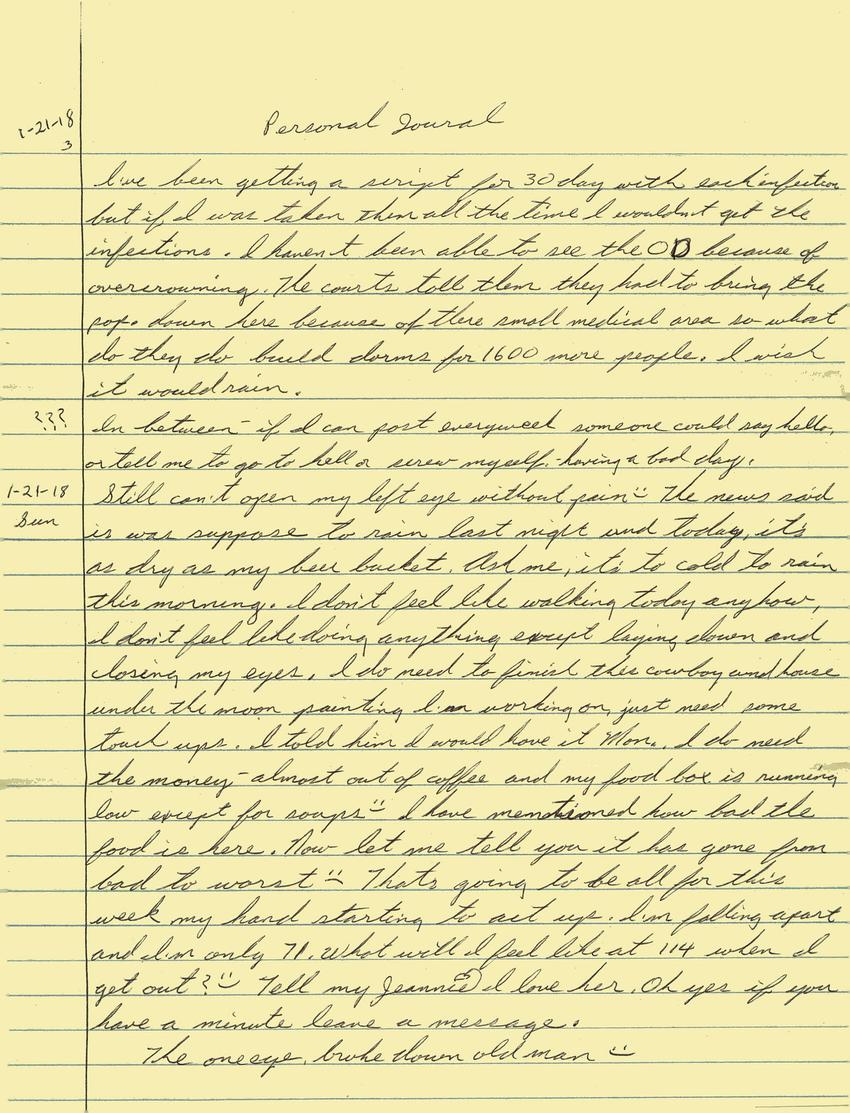 1-21-18
3
Personal Joural
I've been getting a script for 30 day with each infection
but if I was taken them all the time I wouldn't get the
infections. I haven't been able to see the OD because of
overcrowning. The courts toll them they had to bring the
pop. down here because of there small medical area so what
do they do build dorms for 1600 more people. I wish
it would rain.
???
In between - if I can post everyweek someone could say hello,
or tell me to go to hell or screw myself. having a bad day.
1-21-18
Sun
Still can't open my left eye without pain :) The news said
is was suppose to rain last night and today, it's
as dry as my beer bucket. Ask me, it's to cold to rain
this morning. I don't feel like walking today anyhow,
I don't feel like doing anything except laying down and
closing my eyes. I do need to finish this cowboy and house
under the moon painting I'm working on, just need some
touch ups. I told him I would have it Mon.. I do need
the money - almost out of coffee and my food box is running
low except for soups :) I have mentioned how bad the
food is here. Now let me tell you it has gone from
bad to worst :) Thats going to be all for this
week my hand starting to act up. I'm falling apart
and I'm only 71. What will I feel like at 114 when I
get out? :) Tell my Jeannie I love her. Oh yes if you
have a minute leave a message.
The oneeye, broke down old man :)